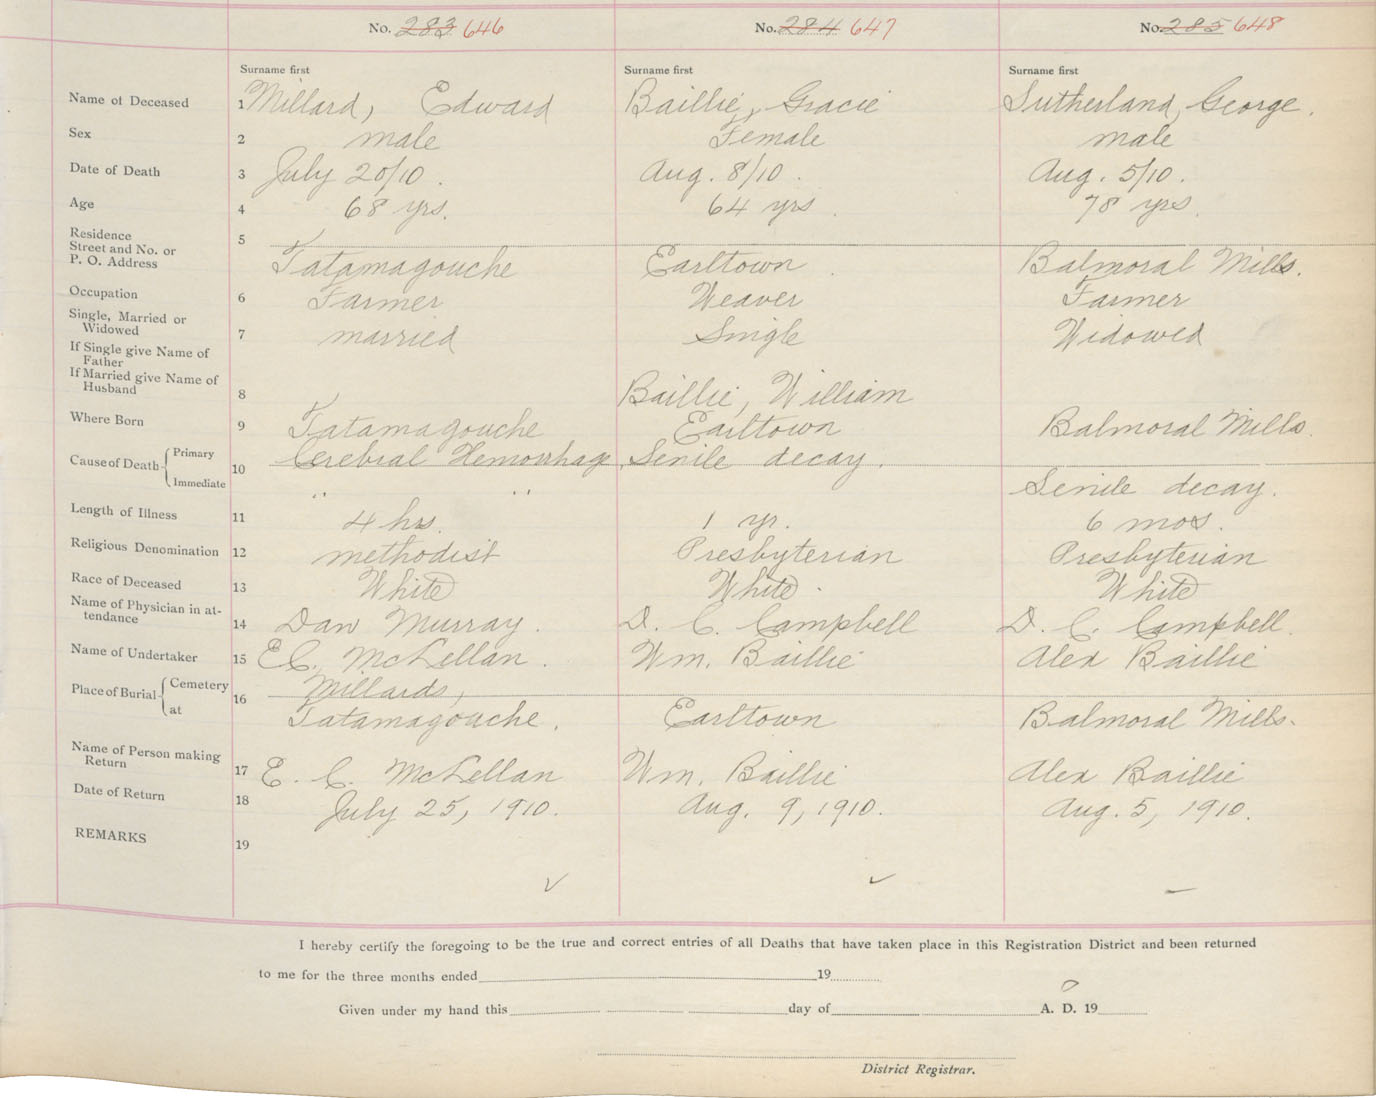 No. 283 646 No. 284 647 No. 285 648
Surname first Surname first Surname first
Name of Deceased 1 Millard, Edward Baillie, Gracie Sutherland, George.
Sex 2 male Female male
Date of Death 3 July 20/10. Aug. 8/10. Aug. 5/10.
Age 4 68 yrs. 64 yrs. 78 yrs.
Residence
Street and No. or 5
P. O. Address Tatamagouche Earltown. Balmoral Mills.
Occupation 6 Farmer Weaver Farmer
Single, Married or
Widowed 7 married Single Widowed
If Single give Name of
Father
If Married give Name of
Husband 8 Baillie, William
Where Born 9 Tatamagouche Earltown Balmoral Mills.
Cause of Death Primary 10 Cerebral Hemorrhage. Senile decay.
Immediate " " Senile decay.
Length of Illness 11 4 hrs. 1 yr. 6 mos.
Religious Denomination 12 methodist Presbyterian Presbyterian
Race of Deceased 13 White White. White
Name of Physician in at-
tendance 14 Dan Murray. D. C. Campbell D. C. Campbell.
Name of Undertaker 15 E.C. McLellan. Wm. Baillie Alex Baillie
Place of Burial Cemetery 16 Millards,
at Tatamagouche. Earltown Balmoral Mills.
Name of Person making
Return 17 E. C. McLellan Wm. Baillie Alex Baillie
Date of Return 18 July 25, 1910. Aug. 9, 1910. Aug. 5, 1910.
REMARKS 19
I hereby certify the foregoing to be the true and correct entries of all Deaths that have taken place in this Registration District and been returned
to me for the three months ended 19
Given under my hand this day of A. D. 19
District Registrar.